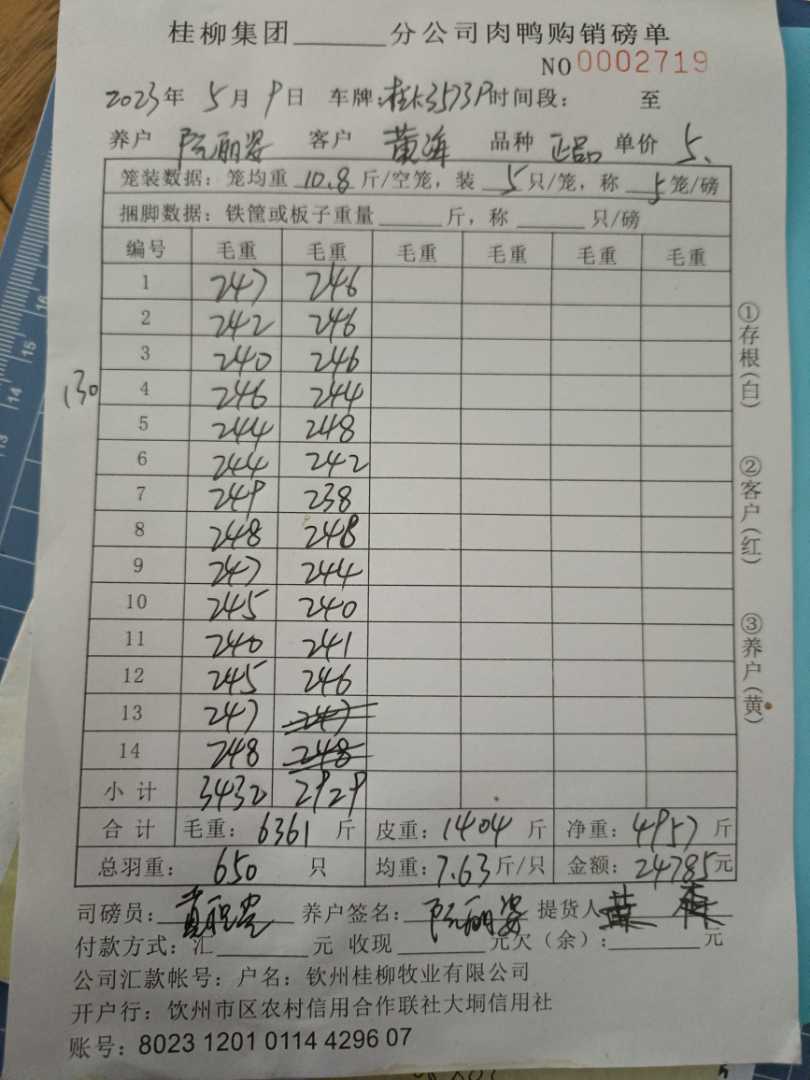 桂柳集团______分公司肉鸭购销磅单
NO 0002719
2023年 5月 9日 车牌:桂A3573P 时间段: 至
养户 阮丽姿 客户 黄海 品种 正品 单价 5.
笼装数据: 笼均重 10.8 斤/空笼, 装 5 只/笼, 称 5 笼/磅
捆脚数据: 铁筐或板子重量______斤, 称______只/磅
编号 毛重 毛重 毛重 毛重 毛重 毛重
1 247 246
2 242 246
3 240 246
130
4 246 244
5 244 248
6 244 242
7 249 238
8 248 248
9 247 244
10 245 240
11 240 241
12 245 246
13 247 247
14 248 248
小计 3432 2929
合计 毛重: 6361 斤 皮重: 1404 斤 净重: 4957 斤
总羽重: 650 只 均重: 7.63 斤/只 金额: 24785 元
①存根(白) ②客户(红) ③养户(黄)
司磅员: 养户签名: 阮丽姿 提货人
付款方式: 汇______元 收现______元欠(余):______元
公司汇款帐号: 户名: 钦州桂柳牧业有限公司
开户行: 饮州市区农村信用合作联社大垌信用社
账号: 8023 1201 0114 4296 07